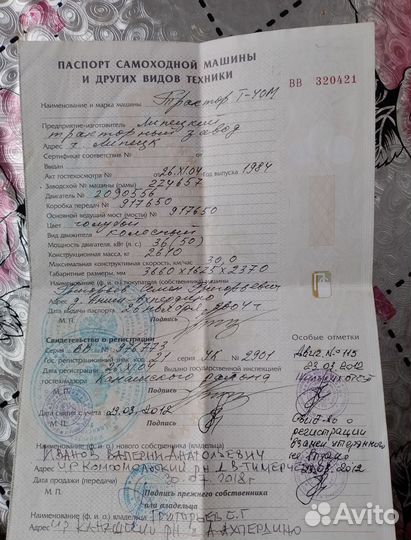 ПАСПОРТ САМОХОДНОЙ МАШИНЫ
И ДРУГИХ ВИДОВ ТЕХНИКИ
ВВ 320421
Наименование и марка машины Трактор Т-40М
Предприятие-изготовитель Липецкий
тракторный завод
Адрес г. Липецк
Сертификат соответствия № от
Выдан
Акт гостехосмотра № от 26.XI.04 Год выпуска 1984
Заводской № машины (рамы) 224657
Двигатель № 2090556
Коробка передач № 917650
Основной ведущий мост (мосты) № 917650
Цвет голубой
Вид движителя колесный
Мощность двигателя, кВт (л. с.) 36 (50)
Конструкционная масса, кг 2610
Максимальная конструктивная скорость, км/час 30,0
Габаритные размеры, мм 3660х1625х2370
Наименование (ф. и. о.) покупателя (собственника)
Адрес д.
Дата выдачи паспорта 26 ноября 2004 г.
М. П. Подпись
Свидетельство о регистрации
Особые отметки
Серия ВВ № 976773
Гос. регистрационный знак код 21 серия УК № 2901
Дата регистрации 26.XI.04 Выдано государственной инспекцией
гостехнадзора Канашского района
М. П. Подпись
Двиг. № 115
23.03.2012
Дата снятия с учета 29.03.2012
М. П. Подпись
Св-во о
регистрации
взамен утерянного
не выдано
2012
ИВАНОВ ВАЛЕРИЙ АНАТОЛЬЕВИЧ
Наименование (ф. и. о.) нового собственника (владельца)
Адрес Ч.Р КОМСОМОЛЬСКИЙ Р.Н Д В-ТИМЕРЧЕ
Дата продажи (передачи) 07.2018 г
М. П. Подпись прежнего собственника
или владельца
Наименование (ф. и. о.) собственника (владельца) ГРИГОРЬЕВ С.Г
Адрес Ч.Р КАНАШСКИЙ Р.Н Д А АХПЕРДИНО
Avito